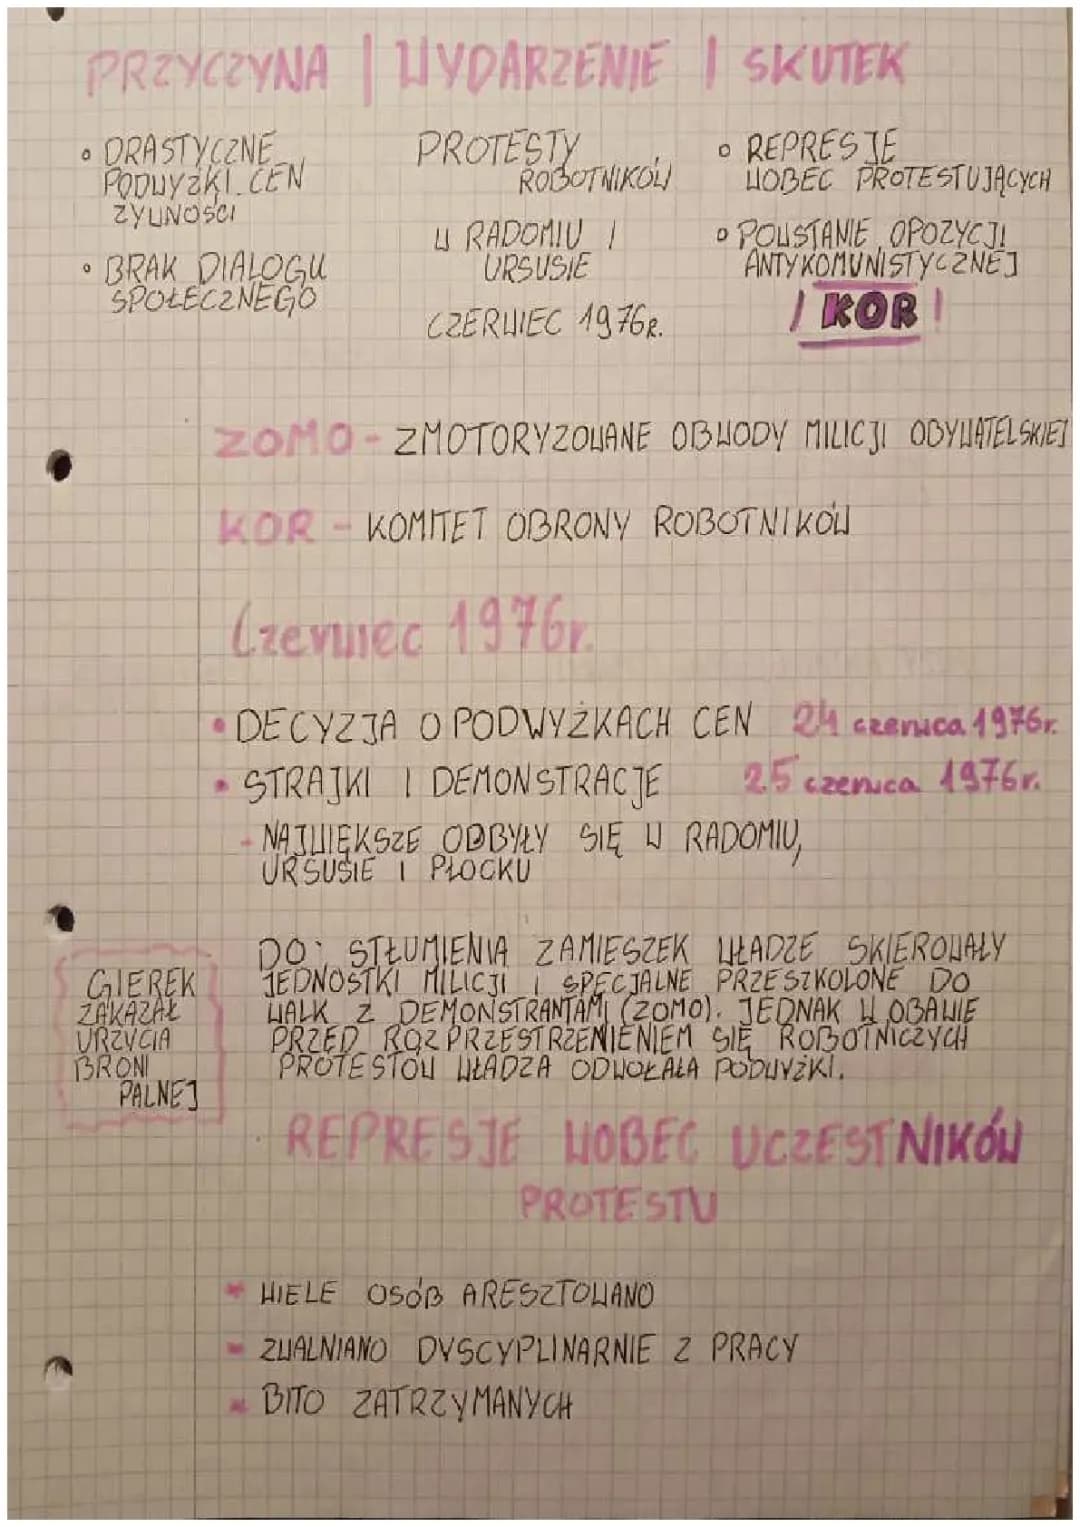 PRZYCZYNA | WYDARZENIE | SKUTEK
• DRASTYCZNE
PODWYŻKI CEN
ŻYWNOŚCI
• BRAK DIALOGU
SPOŁECZNEGO
PROTESTY
ROBOTNIKÓW
W RADOMIU I
URSUSIE
CZERWIEC 1976R.
• REPRESJE
WOBEC PROTESTUJĄCYCH
• POWSTANIE OPOZYCJI
ANTYKOMUNISTYCZNEJ
! KOR !
ZOMO - ZMOTORYZOWANE OBWODY MILICJI OBYWATELSKIEJ
KOR - KOMITET OBRONY ROBOTNIKÓW
Czerwiec 1976r.
• DECYZJA O PODWYŻKACH CEN 24 czerwca 1976r.
• STRAJKI I DEMONSTRACJE 25 czerwca 1976r.
- NAJWIĘKSZE ODBYŁY SIĘ W RADOMIU,
URSUSIE I PŁOCKU
GIEREK
ZAKAZAŁ
URZYCIA
BRONI
PALNEJ
DO STŁUMIENIA ZAMIESZEK WŁADZE SKIEROWAŁY
JEDNOSTKI MILICJI I SPECJALNE PRZESZKOLONE DO
WALK Z DEMONSTRANTAMI (ZOMO). JEDNAK W OBAWIE
PRZED ROZPRZESTRZENIENIEM SIĘ ROBOTNICZYCH
PROTESTÓW WŁADZA ODWOŁAŁA PODWYŻKI.
REPRESJE WOBEC UCZESTNIKÓW
PROTESTU
- WIELE OSÓB ARESZTOWANO
- ZWALNIANO DYSCYPLINARNIE Z PRACY
- BITO ZATRZYMANYCH